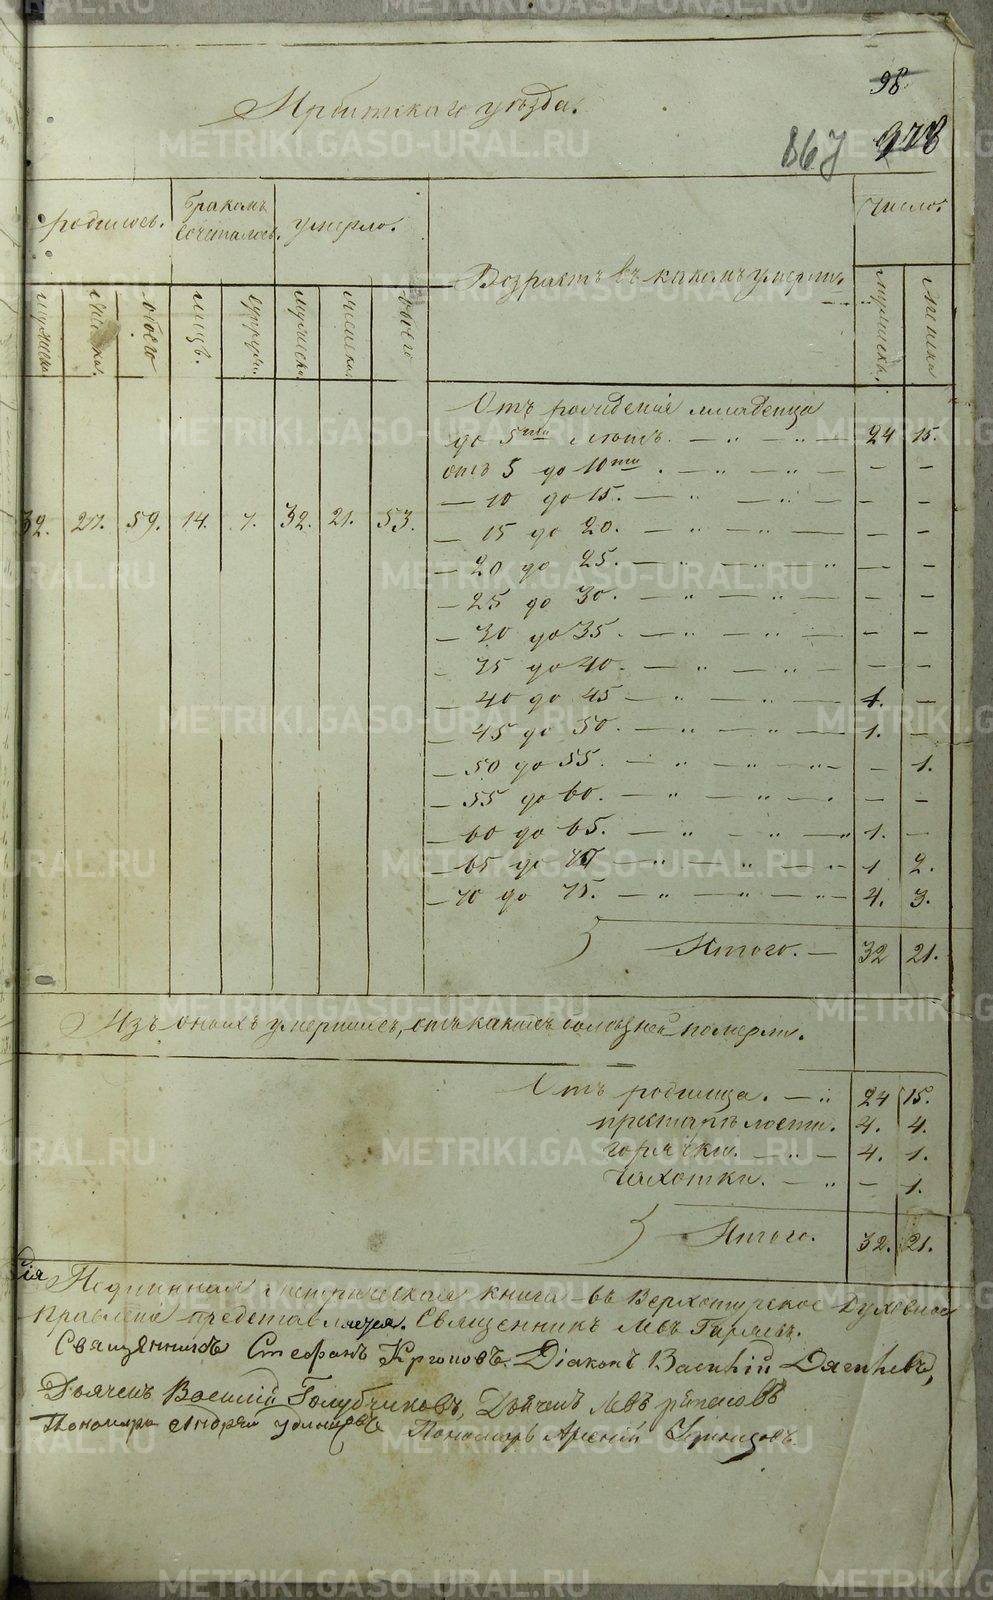 98
Ирбитскаго уѣзда.
867 978
родилось. бракомъ сочеталось. умерло. Возрастъ въ какомъ умерли. Число.
мужеска женска. обоего лицъ. супруж. мужеска женска. обоего мужеска, женска
Отъ рожденія младенца
до 5ти лѣтъ. — „ — „ — 24 15.
отъ 5 до 10ти. — „ — „ — — —
— 10 до 15. — „ — „ — — —
32. 27. 59. 14. 7. 32. 21. 53.
— 15 до 20. — „ — „ — — —
— 20 до 25. — „ — „ — „ — —
— 25 до 30. — „ — „ — — —
— 30 до 35. — „ — „ — — —
— 35 до 40. — „ — „ — — —
— 40 до 45 — „ — „ — 1. —
— 45 до 50. — „ — „ — 1. —
— 50 до 55. — „ — „ — — 1.
— 55 до 60. — „ — „ — — —
— 60 до 65. — „ — „ — 1. —
— 65 до 70 — „ — „ — 1 2.
— 70 до 75. — „ — „ — 4. 3.
Итого. — 32 21.
Изъ оныхъ умершихъ, отъ какихъ болѣзней померли.
Отъ родимца. — „ 24 15.
престарѣлости. 4. 4.
горячки. — „ — 4. 1.
чахотки. — „ — 1.
Итого. 32. 21.
Сія Подлинная метрическая книга въ Верхотурское Духовное
Правленіе представляется. Священникъ Левъ Гаряевъ.
Священникъ Стефанъ Діаконъ Василій
Дьячекъ Василій Голубчиковъ, Дьячекъ Левъ
Пономарь Андрей Пономарь Арсеній
METRIKI.GASO-URAL.RU